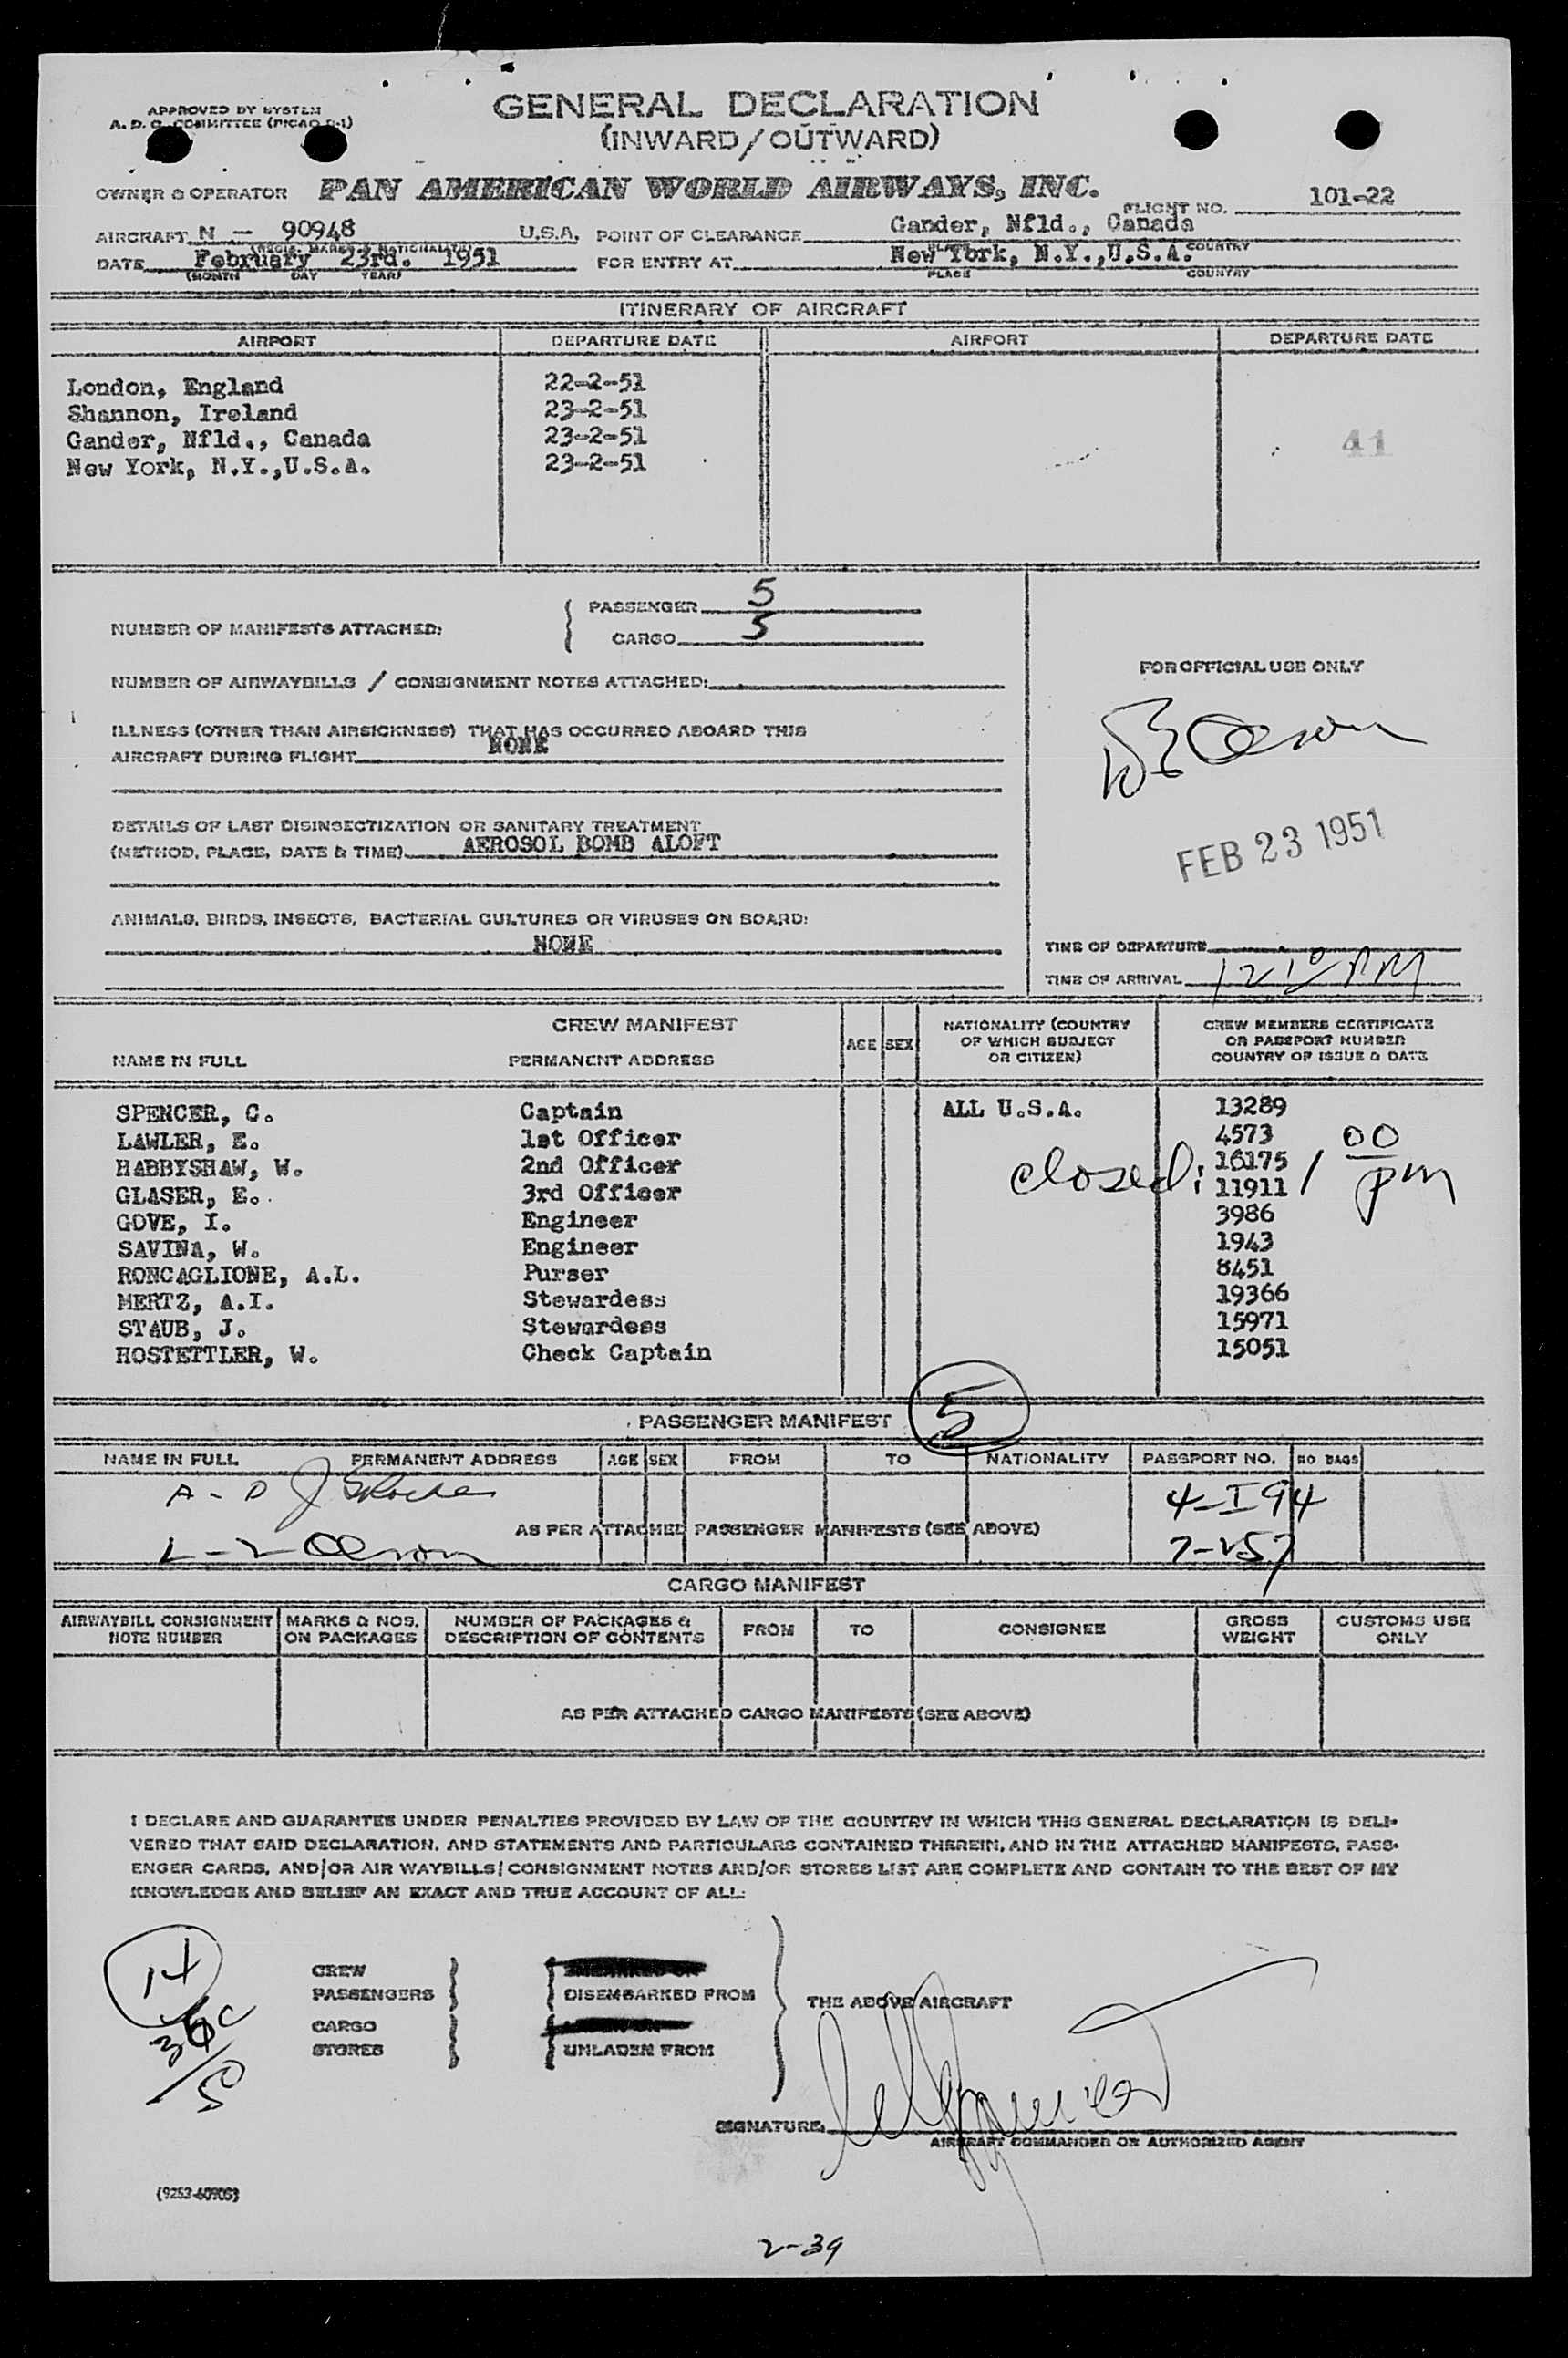 APPROVED BY SYSTEM
A. D. C. COMMITTEE (PICAO R-1)
GENERAL DECLARATION
(INWARD/OUTWARD)
OWNER & OPERATOR PAN AMERICAN WORLD AIRWAYS, INC. FLIGHT NO. 101-22
AIRCRAFT N - 90948 U.S.A. POINT OF CLEARANCE Gander, Nfld., Canada
(REGIS. MARKS & NATIONALITY) PLACE COUNTRY
DATE February 23rd. 1951 FOR ENTRY AT New York, N.Y.,U.S.A.
(MONTH DAY YEAR) PLACE COUNTRY
ITINERARY OF AIRCRAFT
AIRPORT DEPARTURE DATE AIRPORT DEPARTURE DATE
London, England 22-2-51
Shannon, Ireland 23-2-51
Gander, Nfld., Canada 23-2-51 41
New York, N.Y.,U.S.A. 23-2-51
NUMBER OF MANIFESTS ATTACHED: PASSENGER 5
CARGO 5
NUMBER OF AIRWAYBILLS / CONSIGNMENT NOTES ATTACHED:
FOR OFFICIAL USE ONLY
ILLNESS (OTHER THAN AIRSICKNESS) THAT HAS OCCURRED ABOARD THIS
AIRCRAFT DURING FLIGHT NONE
DETAILS OF LAST DISINSECTIZATION OR SANITARY TREATMENT
(METHOD, PLACE, DATE & TIME) AEROSOL BOMB ALOFT
FEB 23 1951
ANIMALS, BIRDS, INSECTS, BACTERIAL CULTURES OR VIRUSES ON BOARD:
NONE
TIME OF DEPARTURE
TIME OF ARRIVAL 12 10 PM
CREW MANIFEST
NAME IN FULL PERMANENT ADDRESS AGE SEX NATIONALITY (COUNTRY OF WHICH SUBJECT OR CITIZEN) CREW MEMBERS CERTIFICATE OR PASSPORT NUMBER COUNTRY OF ISSUE & DATE
SPENCER, C. Captain ALL U.S.A. 13289
LAWLER, E. 1st Officer 4573
HABBYSHAW, W. 2nd Officer 16175
GLASER, E. 3rd Officer 11911
closed: 1 00 pm
GOVE, I. Engineer 3986
SAVINA, W. Engineer 1943
RONCAGLIONE, A.L. Purser 8451
MERTZ, A.I. Stewardess 19366
STAUB, J. Stewardess 15971
HOSTETTLER, W. Check Captain 15051
PASSENGER MANIFEST 5
NAME IN FULL PERMANENT ADDRESS AGE SEX FROM TO NATIONALITY PASSPORT NO. NO BAGS
A - D 4-I94
AS PER ATTACHED PASSENGER MANIFESTS (SEE ABOVE)
L - Z Olson 7-257
CARGO MANIFEST
AIRWAYBILL CONSIGNMENT NOTE NUMBER MARKS & NOS. ON PACKAGES NUMBER OF PACKAGES & DESCRIPTION OF CONTENTS FROM TO CONSIGNEE GROSS WEIGHT CUSTOMS USE ONLY
AS PER ATTACHED CARGO MANIFESTS (SEE ABOVE)
I DECLARE AND GUARANTEE UNDER PENALTIES PROVIDED BY LAW OF THE COUNTRY IN WHICH THIS GENERAL DECLARATION IS DELI-
VERED THAT SAID DECLARATION, AND STATEMENTS AND PARTICULARS CONTAINED THEREIN, AND IN THE ATTACHED MANIFESTS, PASS-
ENGER CARDS, AND/OR AIR WAYBILLS/CONSIGNMENT NOTES AND/OR STORES LIST ARE COMPLETE AND CONTAIN TO THE BEST OF MY
KNOWLEDGE AND BELIEF AN EXACT AND TRUE ACCOUNT OF ALL:
14
CREW
PASSENGERS DISEMBARKED FROM
THE ABOVE AIRCRAFT
CARGO
STORES UNLADEN FROM
SIGNATURE
AIRCRAFT COMMANDER OR AUTHORIZED AGENT
(9253-60905)
2-39